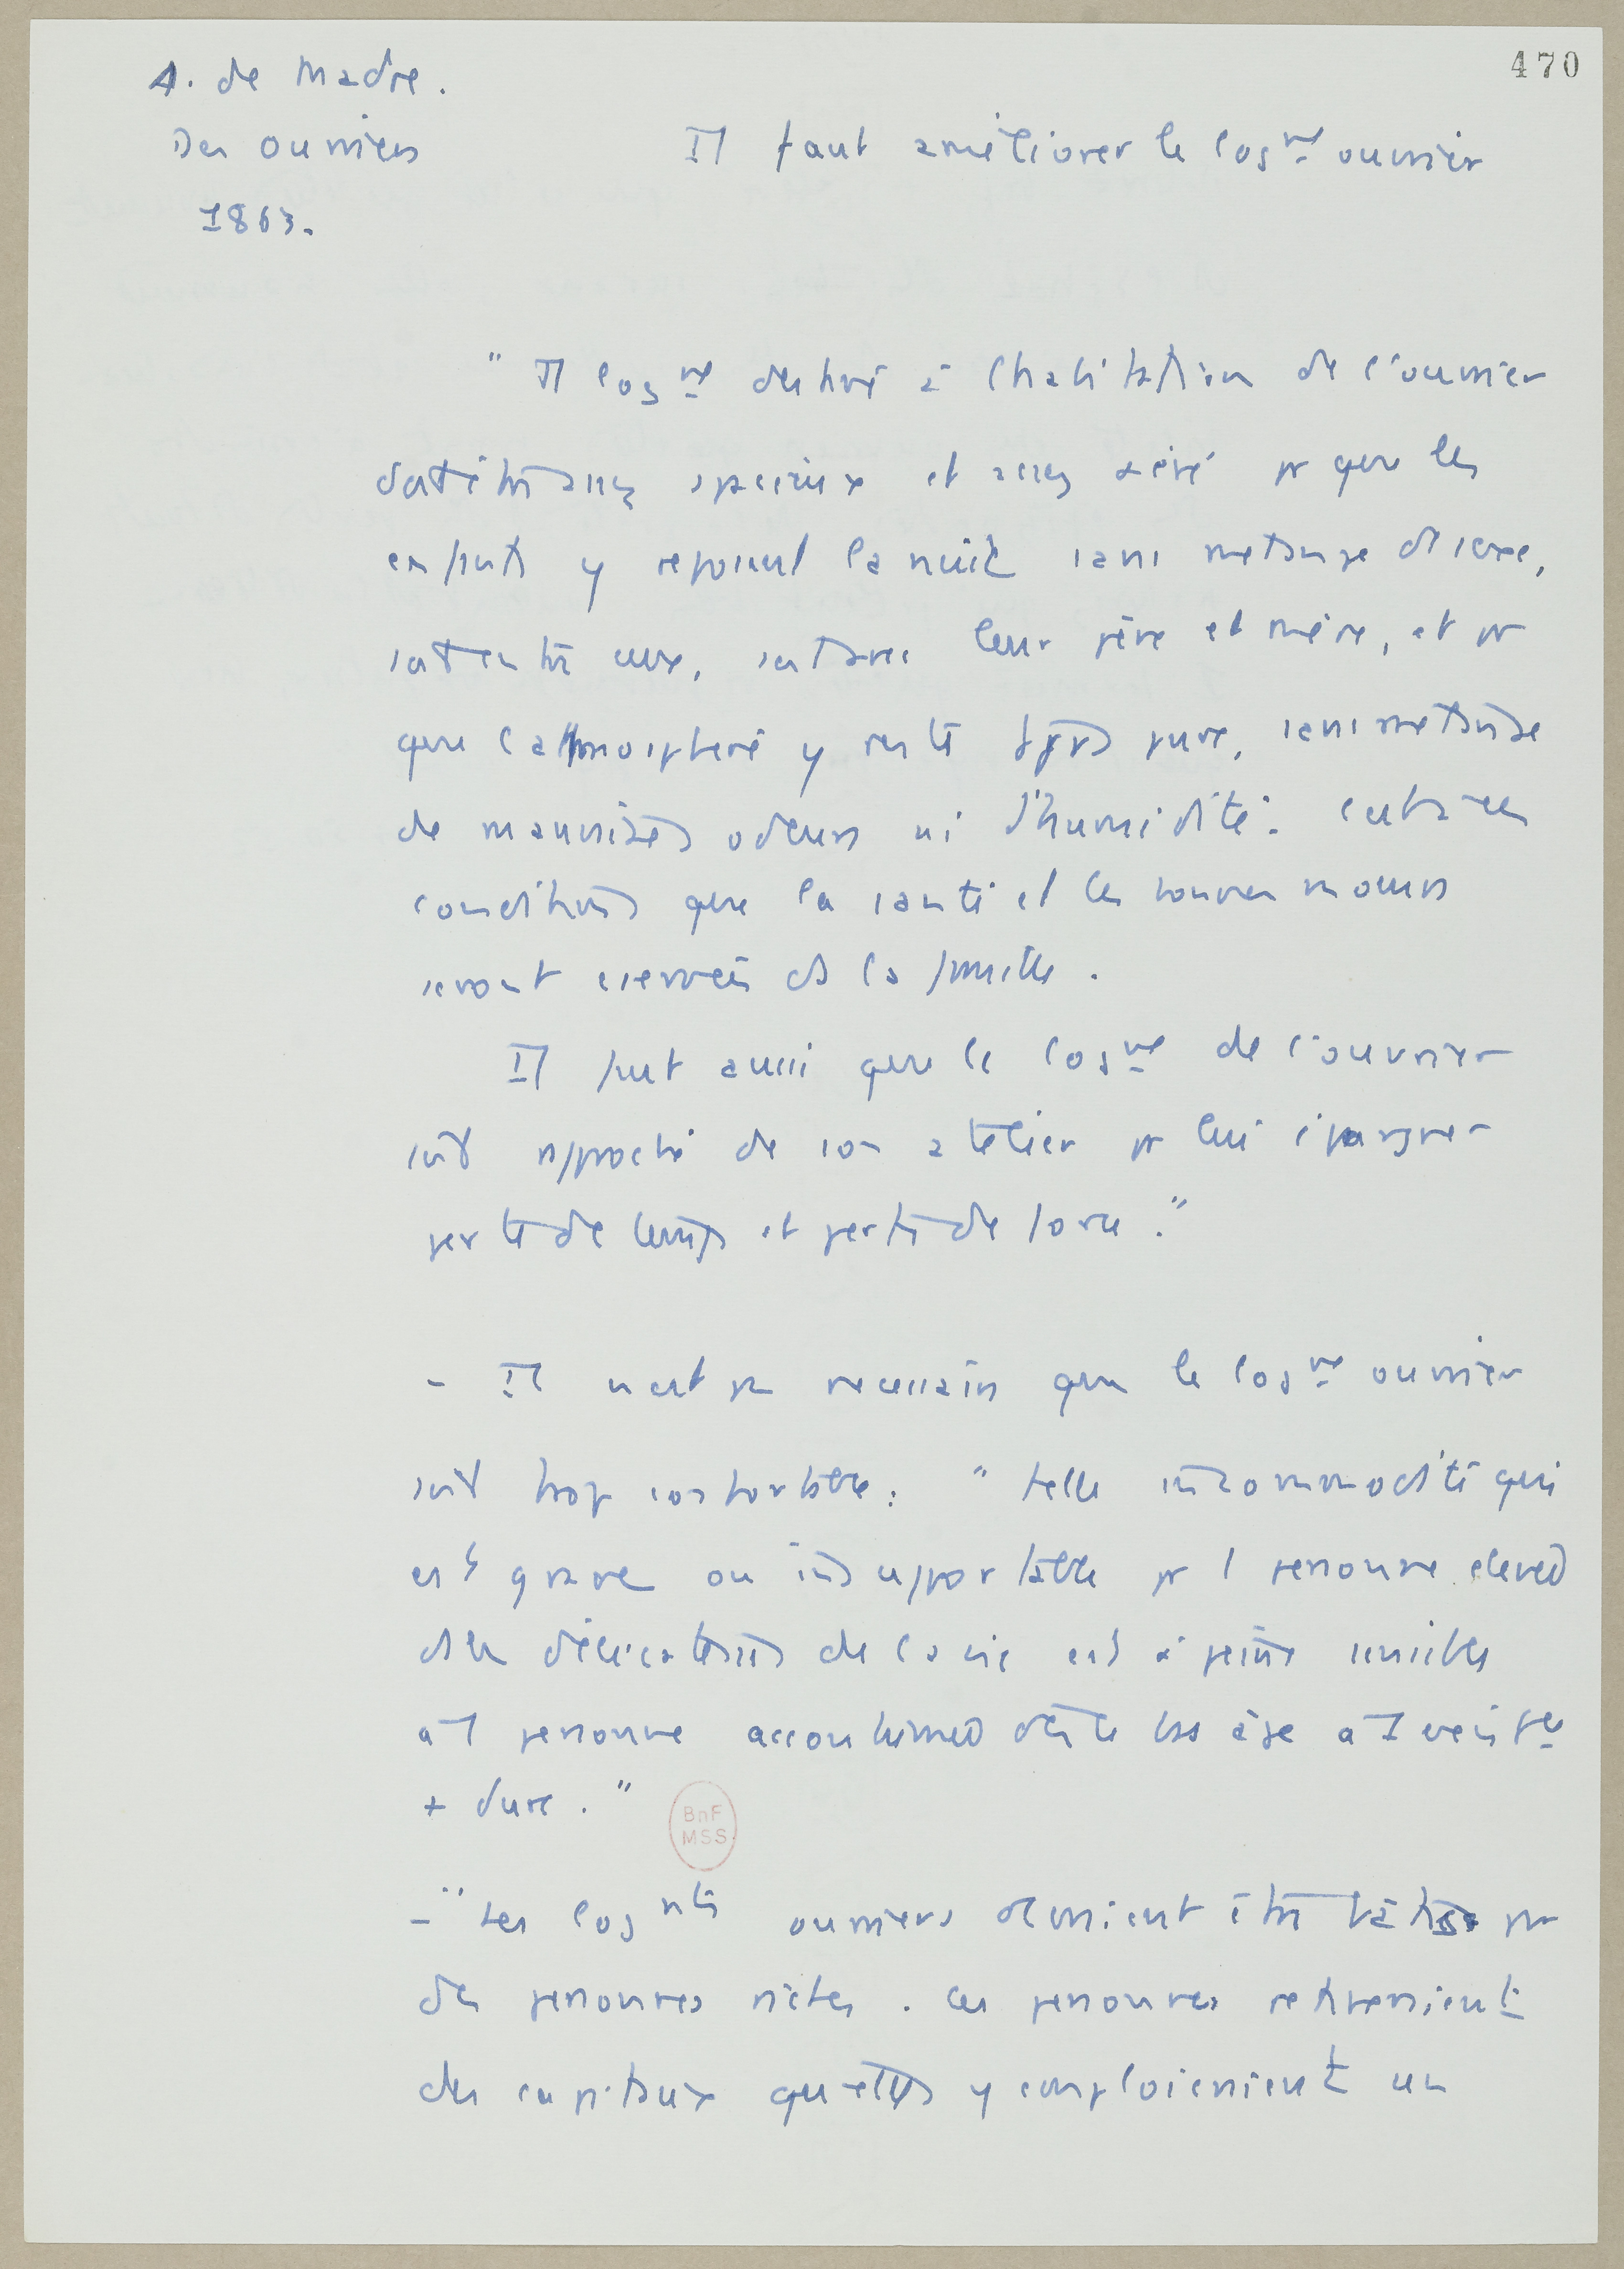 470
A. de Madre.
Des ouvriers
1863.
Il faut améliorer le log^nt ouvrier
" Il log^nt destiné à l'habitation de l'ouvrier
doit être assez spacieux et assez aéré pr que les
enfants y reposent la nuit sans mélange de sexe,
soit entre eux, soit avec leur père et mère, et pr
que l'atmosphère y reste tjrs pure, sans mélange
de mauvaises odeurs ni d'humidité : c'est à ces
conditions que la santé et les bonnes mœurs
seront conservées ds la famille.
Il faut aussi que le log^nt de l'ouvrier
soit rapproché de son atelier pr lui épargner
perte de temps et perte de force."
- Il n'est pas nécessaire que le log^nt ouvrier
soit trop confortable : " telle incommodité qui
est grave ou insupportable pr 1 personne élevée
ds les délicatesses de la vie est à peine sensible
à 1 personne accoutumée dès le bas âge à 1 existce
+ dure."
BnF
MSS
- " Les log^nts ouvriers devraient être bâtis pr
des personnes riches. Ces personnes retireraient
des capitaux qu'elles y emploieraient un